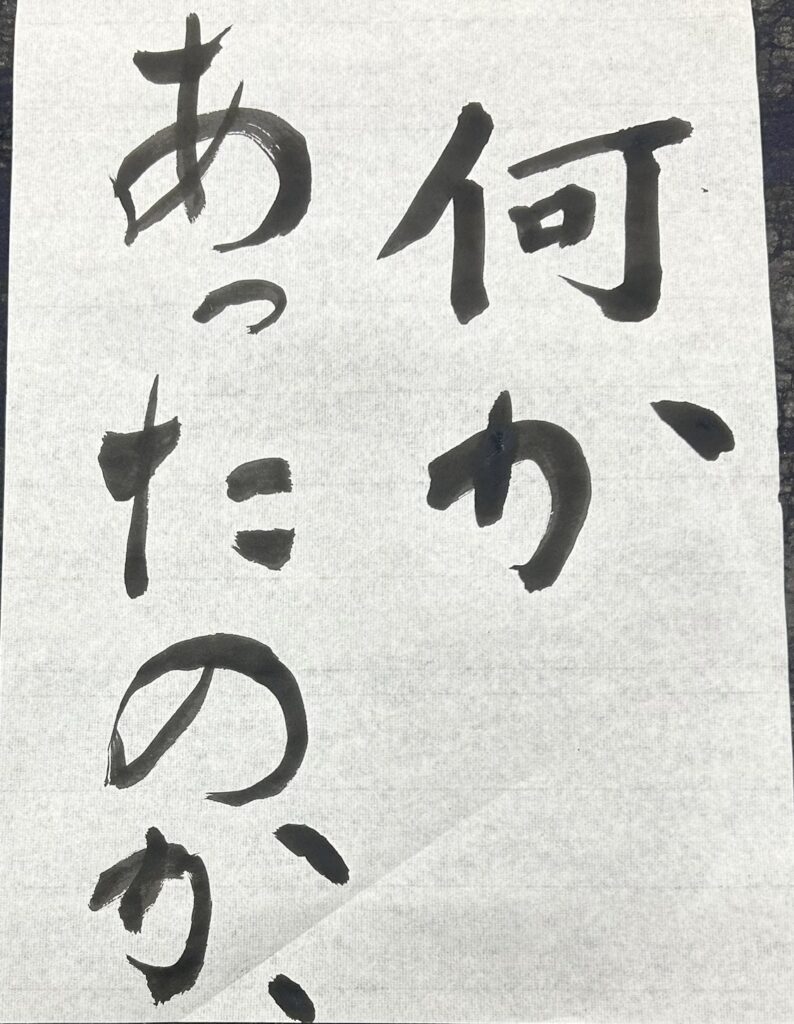 何か
あったのか、